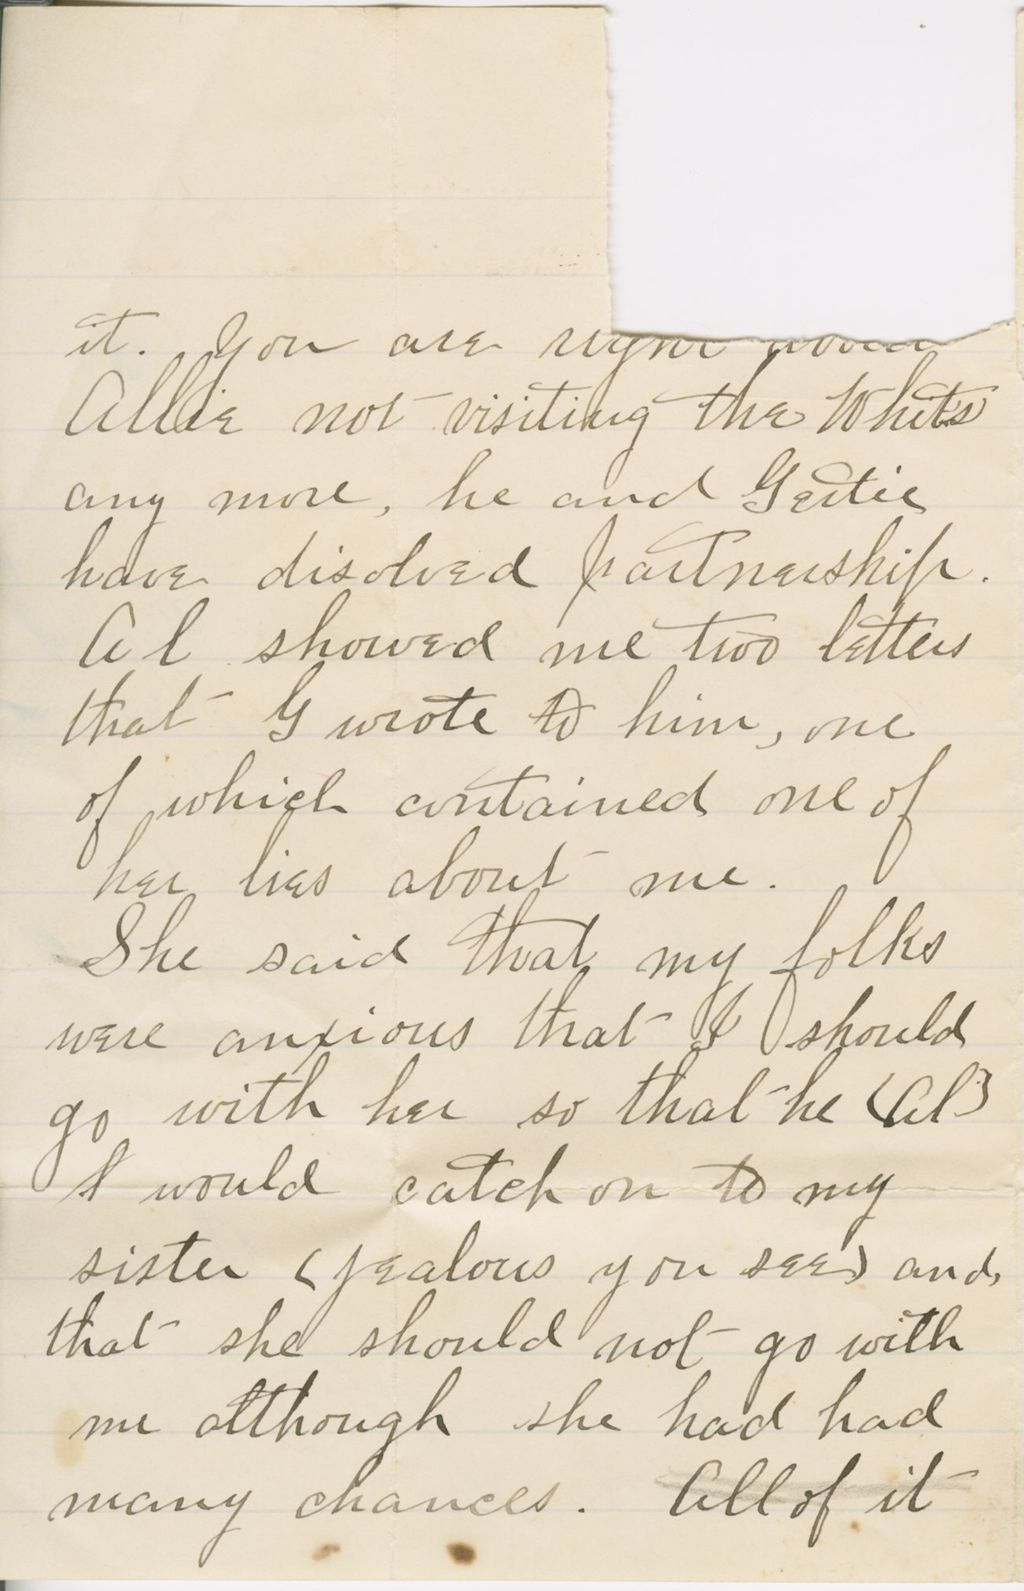 it. You are right about
Allie not visiting the Whits
any more, he and Gertie
have disolved partnership.
Al showed me two letters
that G wrote to him, one
of which contained one of
her lies about me.
She said that my folks
were anxious that I should
go with her so that he (Al)
I would catch on to my
sister (jealous you see) and
that she should not go with
me although she had had
many chances. All of it